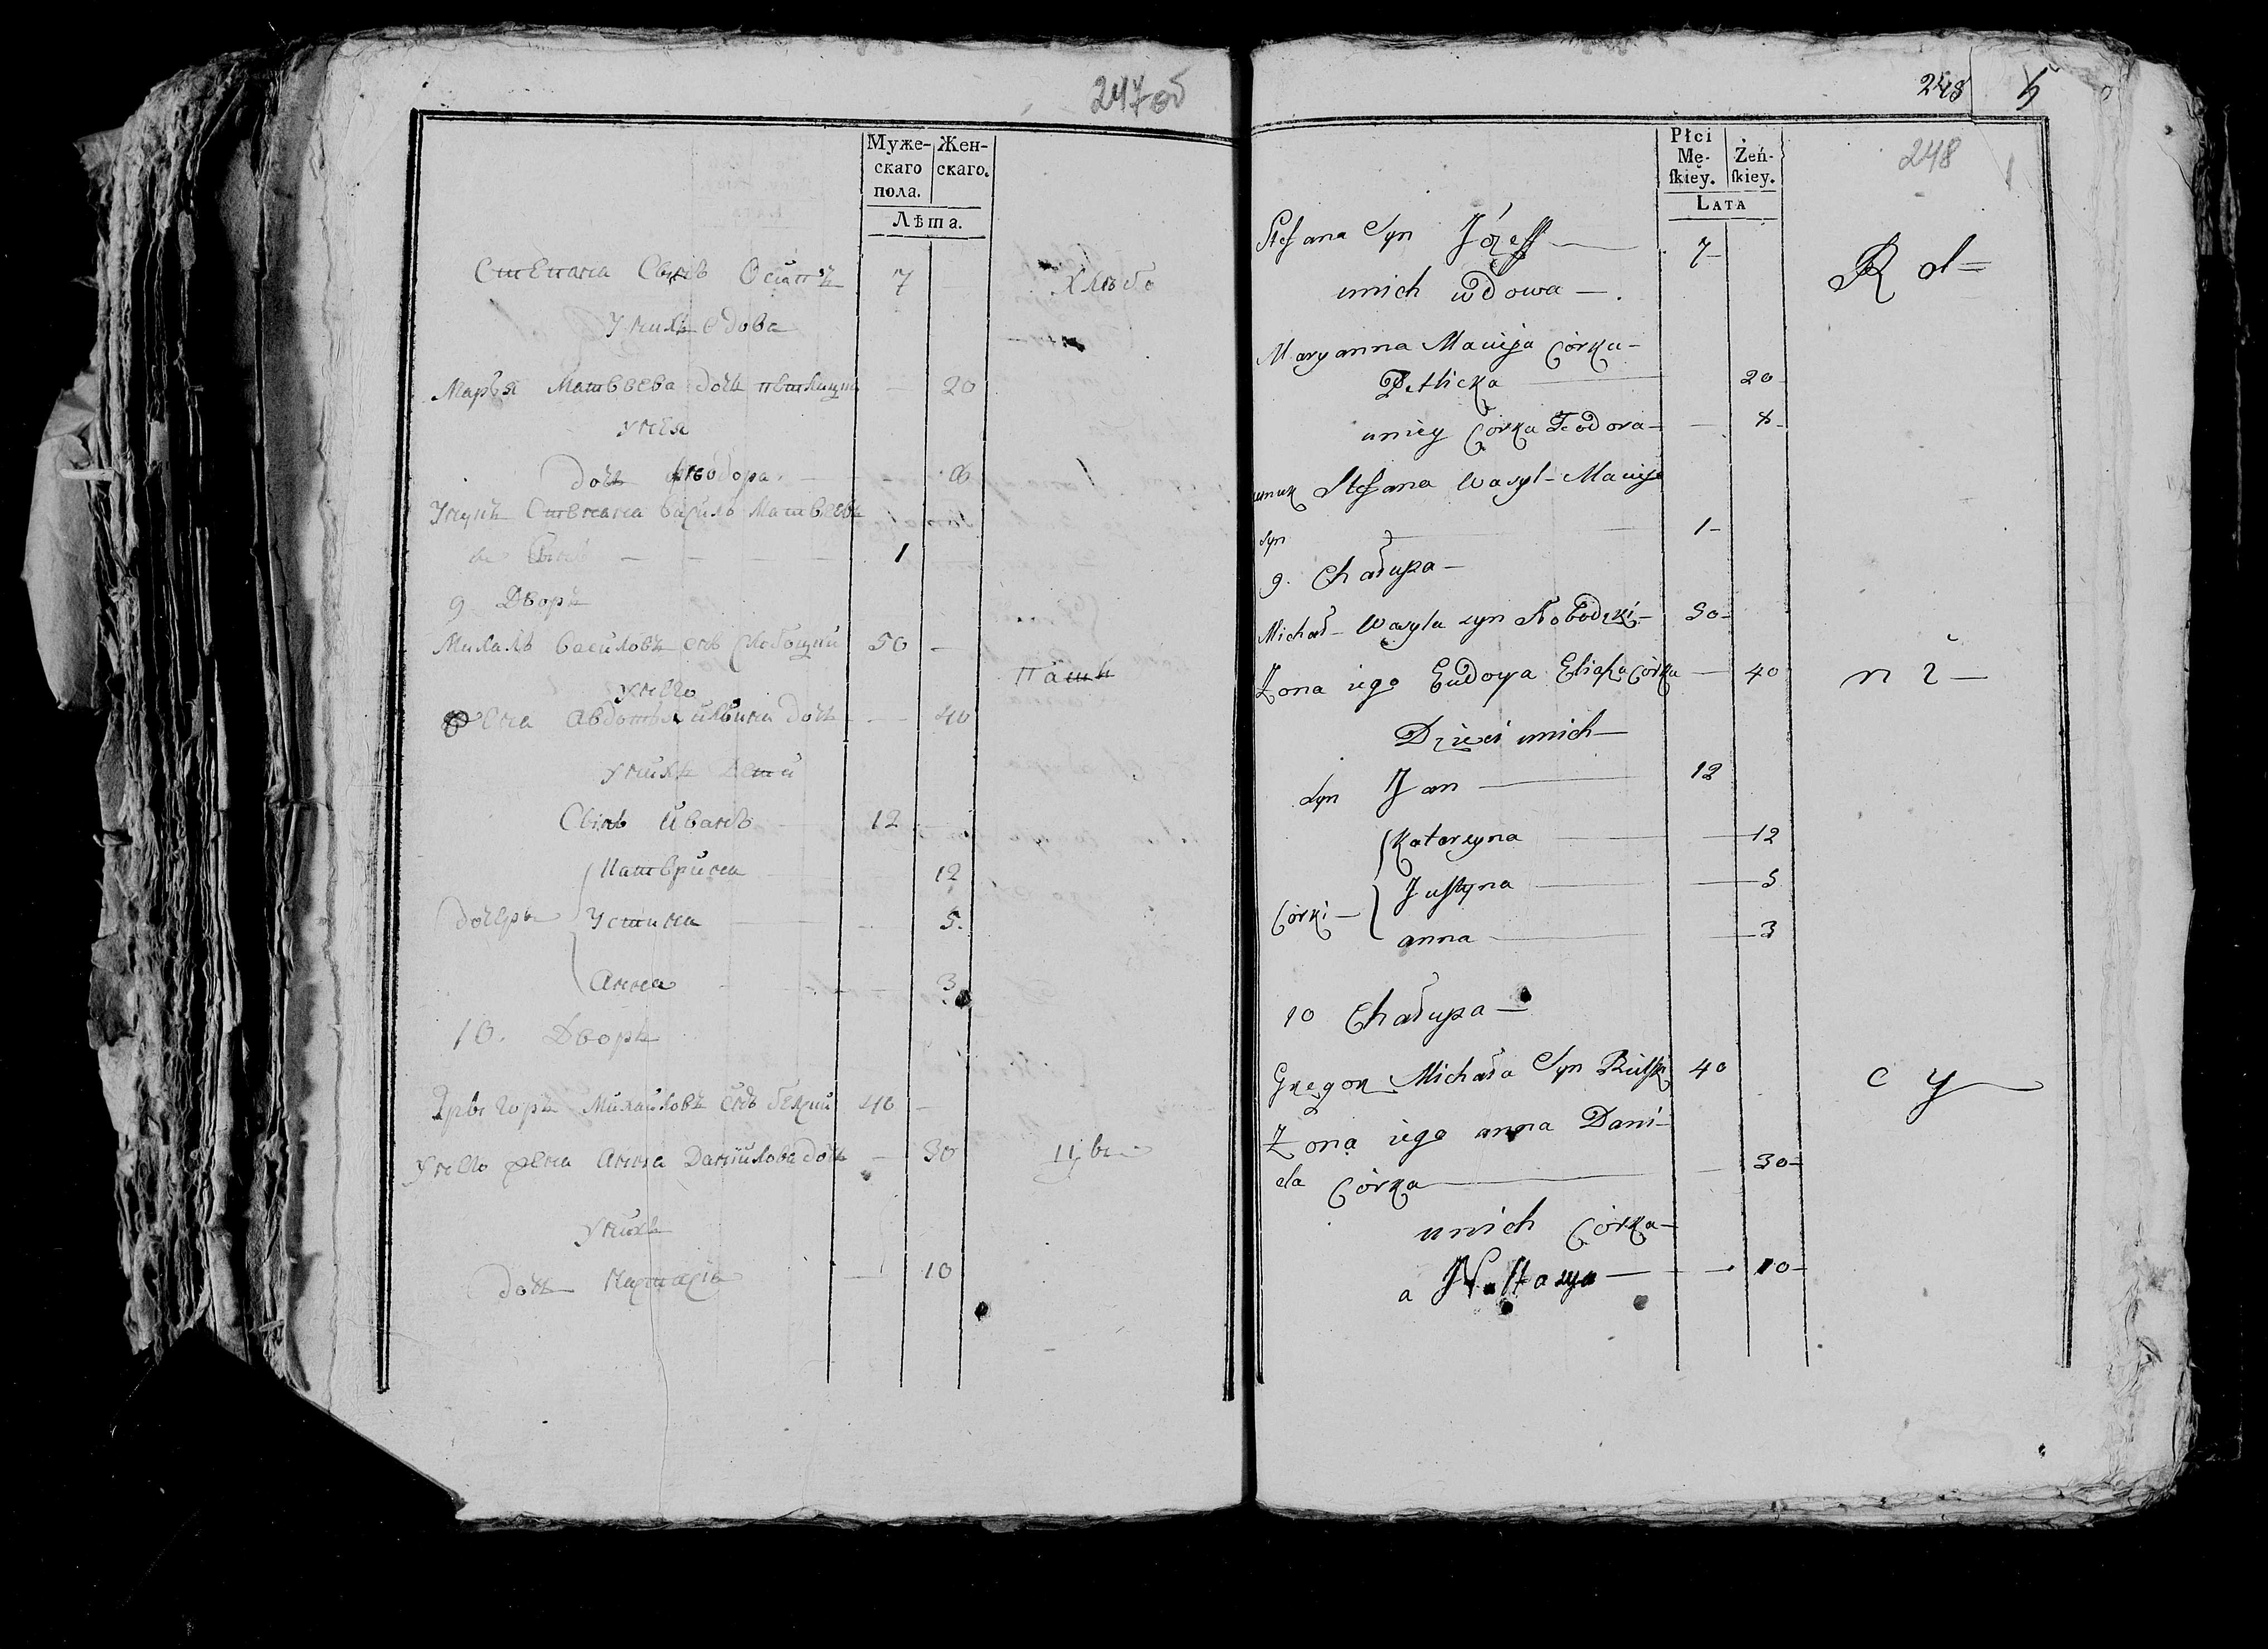 247об
Муже-
скаго
пола.
Жен-
скаго.
Лѣта.
Степана Сынъ Осипъ 7
Хлѣбо
У нихъ вдова
Марья Матвеева дочь 20
У нея
дочь Феодора 8
Унукъ Степана Василь Матвеевъ
Сынъ 1
9 Дворъ
Михалъ Василовъ снъ Слободцкий 50
Паши
У него
жена Авдотья дочь 40
У нихъ дети
Сынъ Иванъ 12
Катерина 12
дочери Устина 5.
Анна 3
10. Дворъ
Григоръ Михайловъ снъ 40
У него жена Анна Данийлова дочь 30
У нихъ
дочь 10
248 5
248
Płci
Mę-
ſkiey.
Żeń-
ſkiey.
LATA
Stefana Syn Józeff 7
R ol
unich wdowa
Maryanna Macieja Córka
Petlicka 20
uniey Córka Teodora 8
unuk Stefana Wasyl Macieja
syn 1
9. Chałupa
Michał Wasyla syn Słobodzki 50
Żona iego Eudoxya Eliasza Córka 40
n i
Dzieci unich
Syn Jan 12
Katarzyna 12
Córki Justyna 5
anna 3
10 Chałupa
Grzegorz Michała Syn 40
c y
Żona iego anna Dani-
ela Córka 30
unich Córka
Nastazya 10